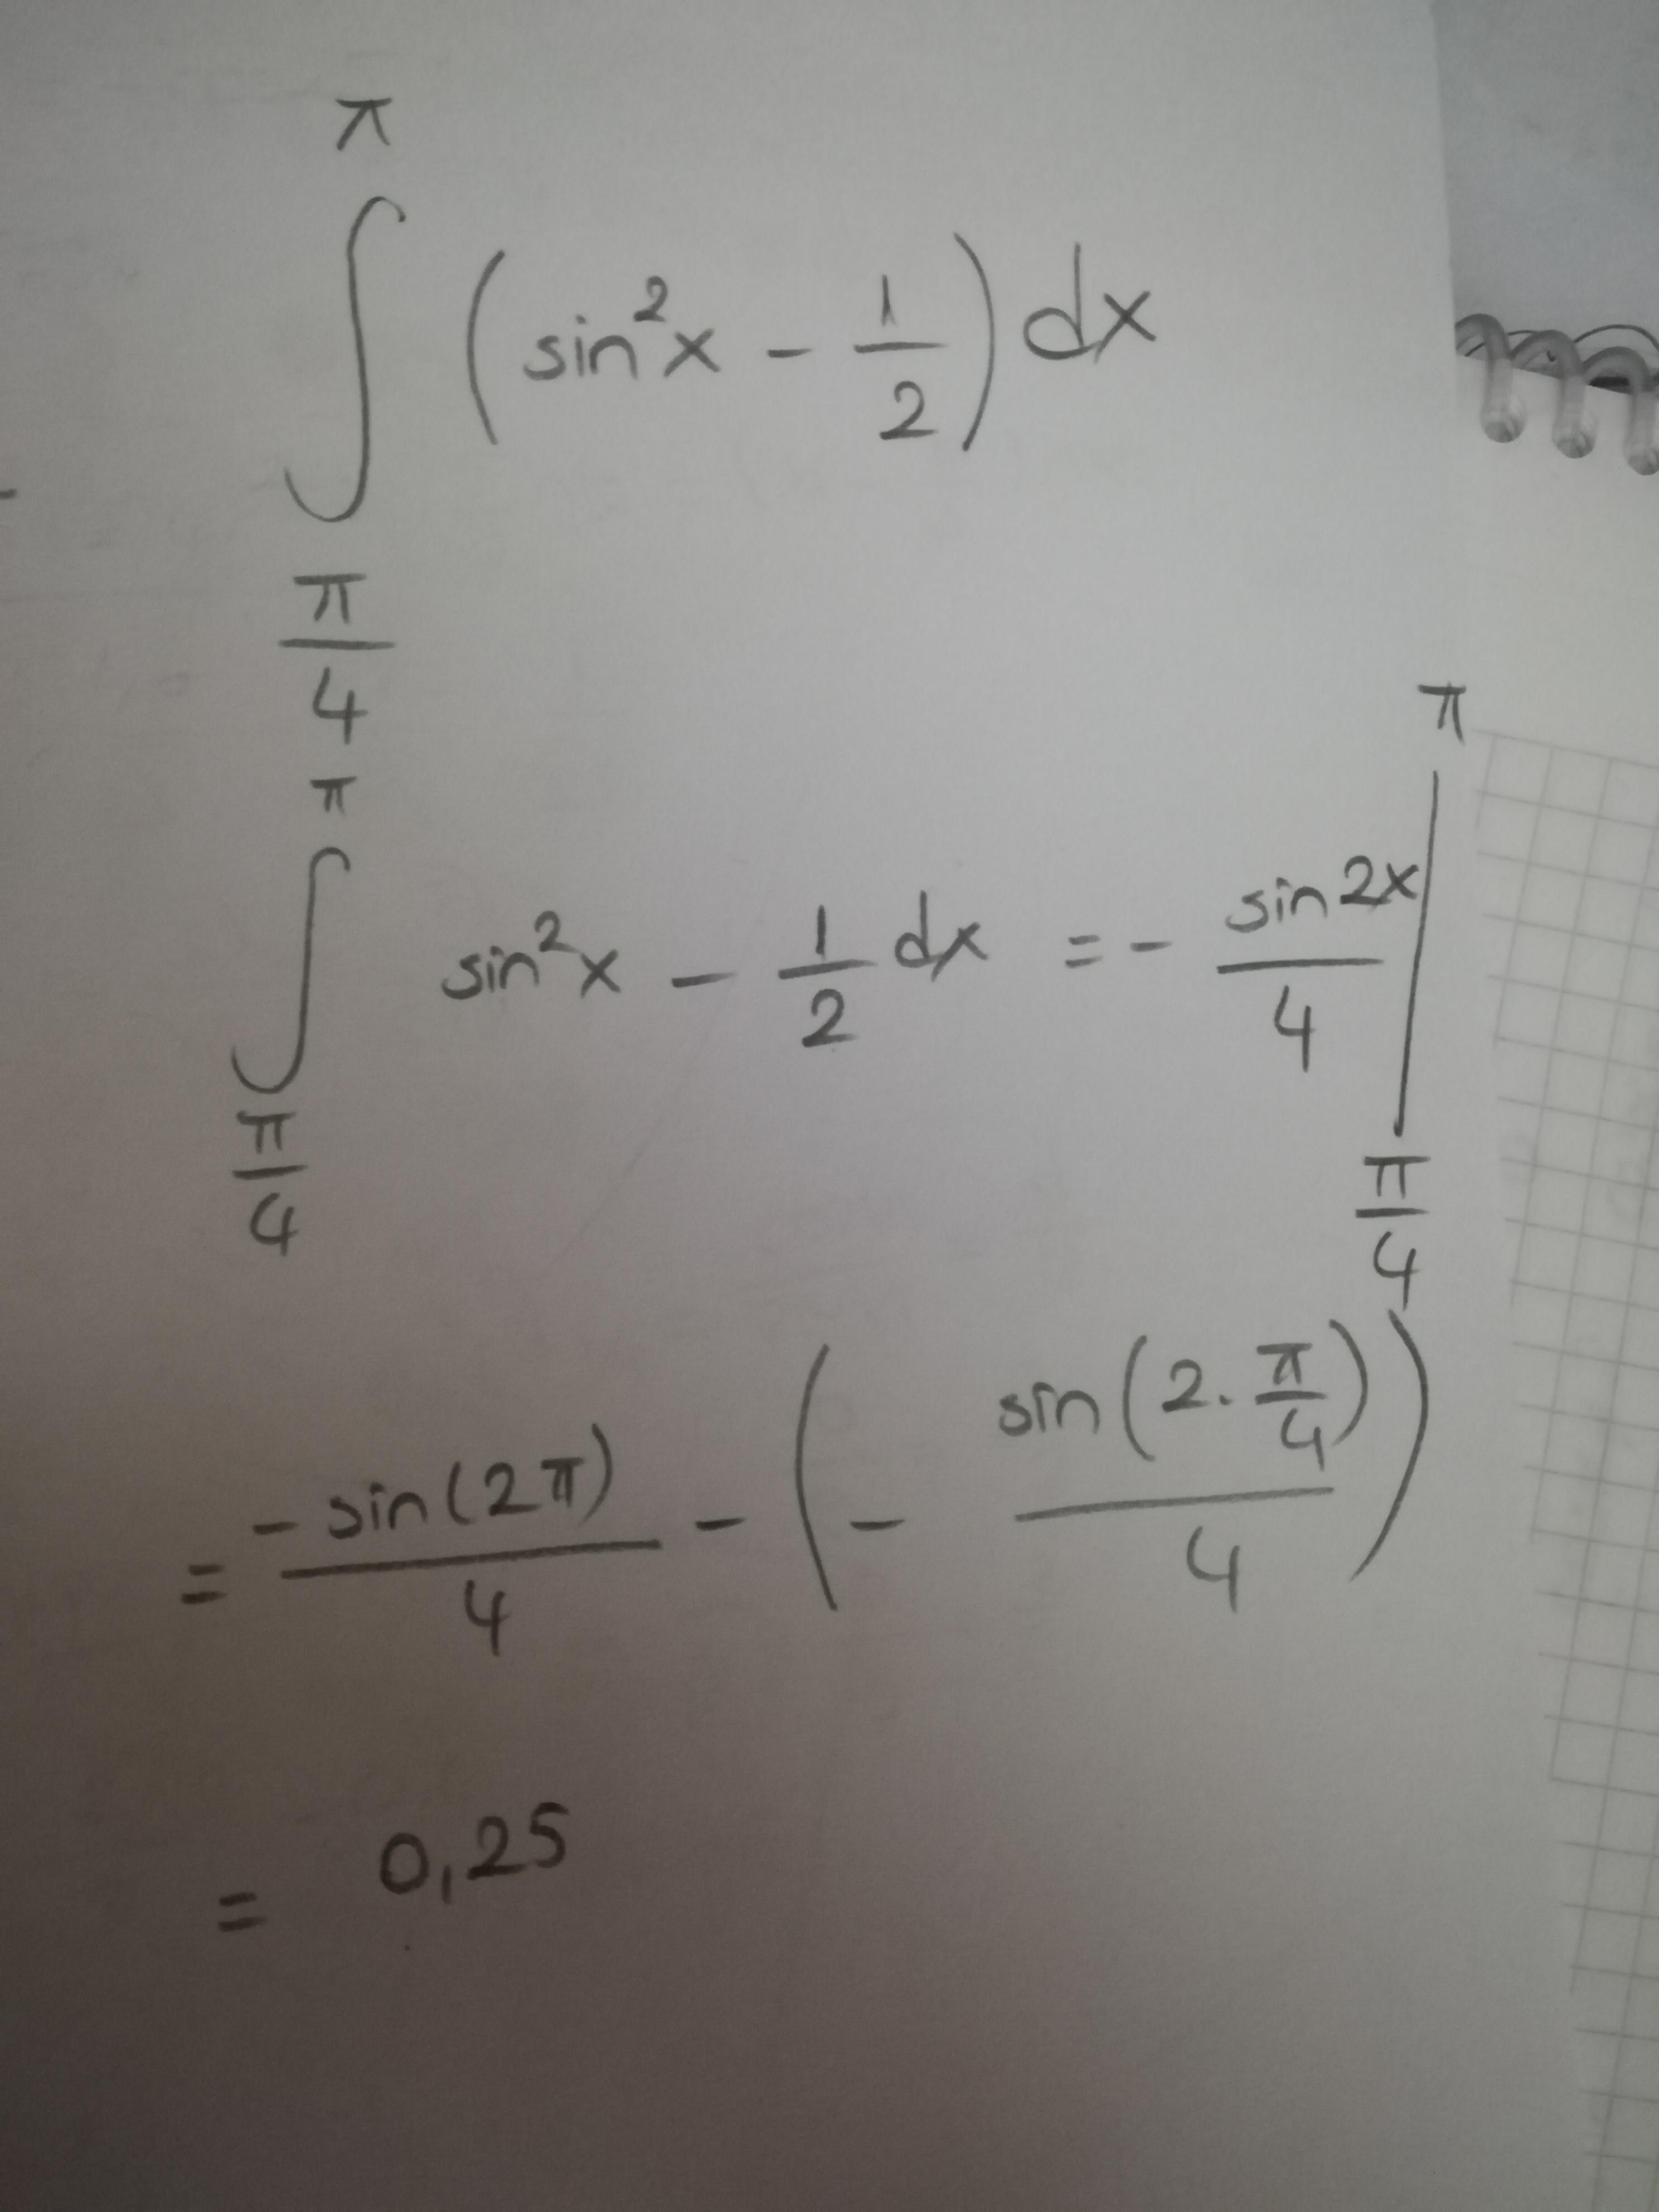 π
∫ (sin²x - 1/2) dx
π/4
π
∫ sin²x - 1/2 dx = - sin2x/4 |
π
π/4
π/4
= -sin(2π)/4 - (- sin(2.π/4)/4)
= 0,25